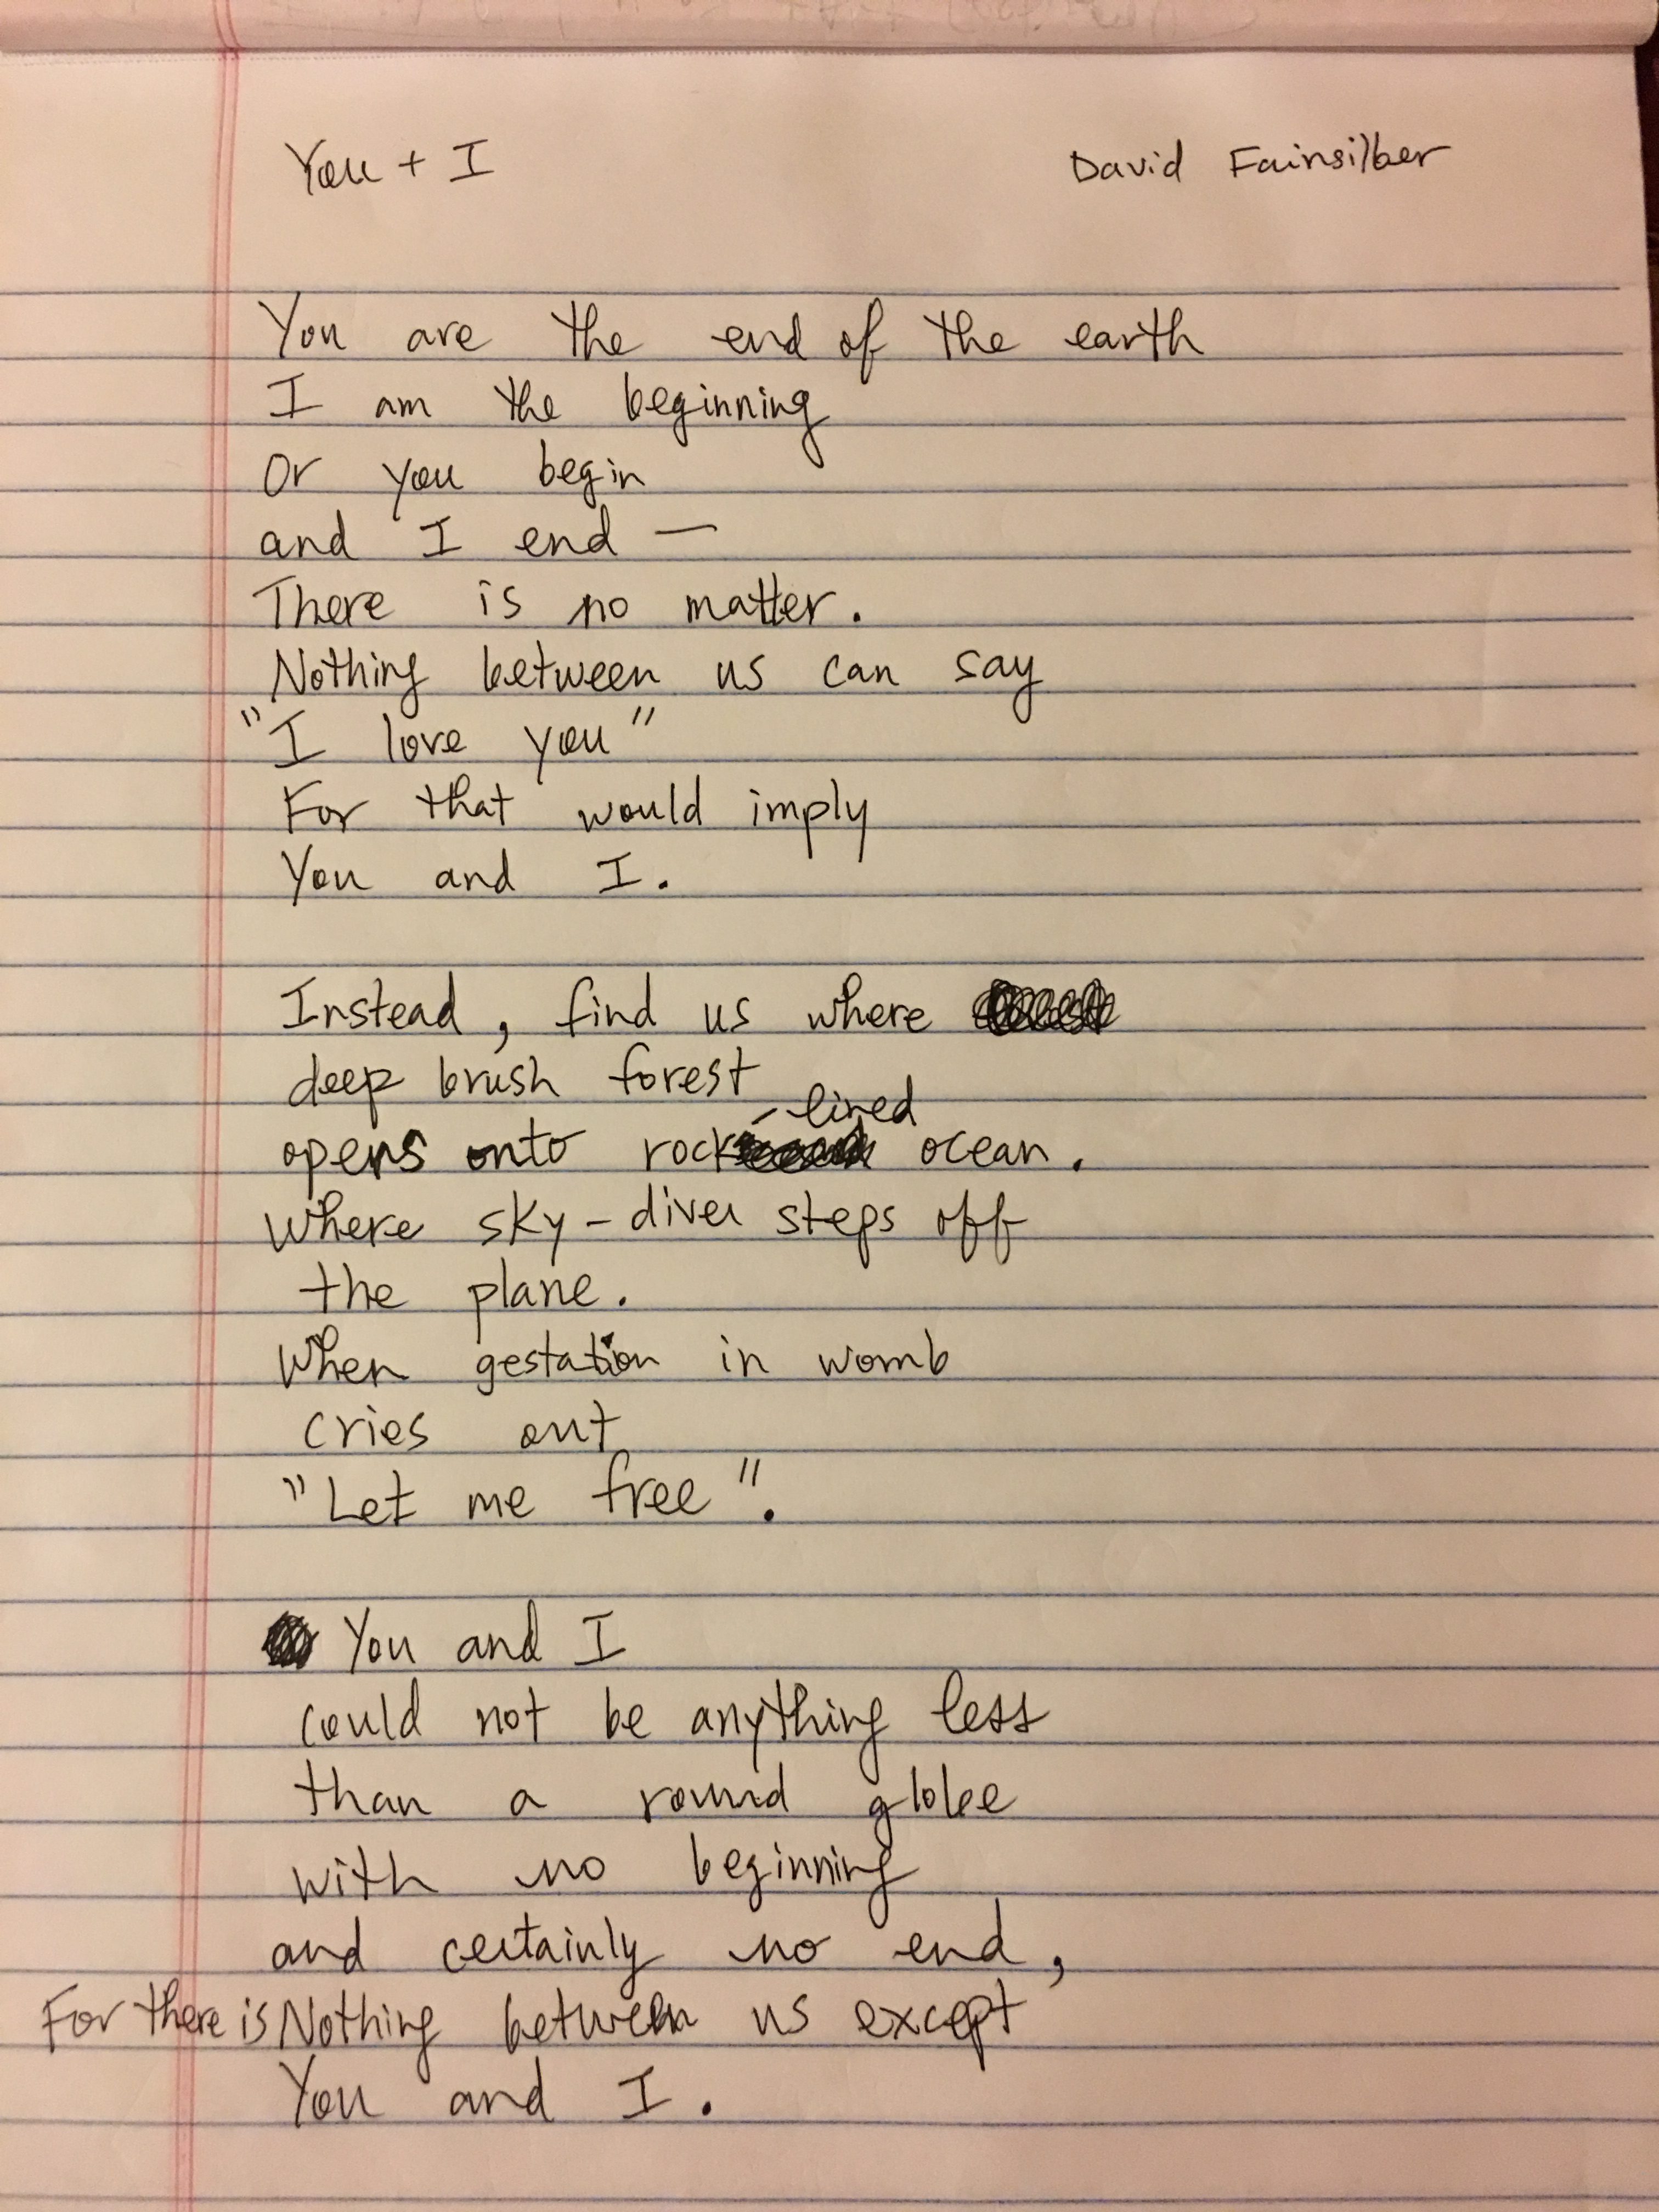 You + I David Fainsilber
You are the end of the earth
I am the beginning
Or you begin
and I end —
There is no matter.
Nothing between us can say
"I love you"
For that would imply
You and I.
Instead, find us where
deep brush forest
opens onto rock-lined ocean.
Where sky-diver steps off
the plane.
When gestation in womb
cries out
"Let me free".
You and I
could not be anything less
than a round globe
with no beginning
and certainly no end,
For there is Nothing between us except
You and I.